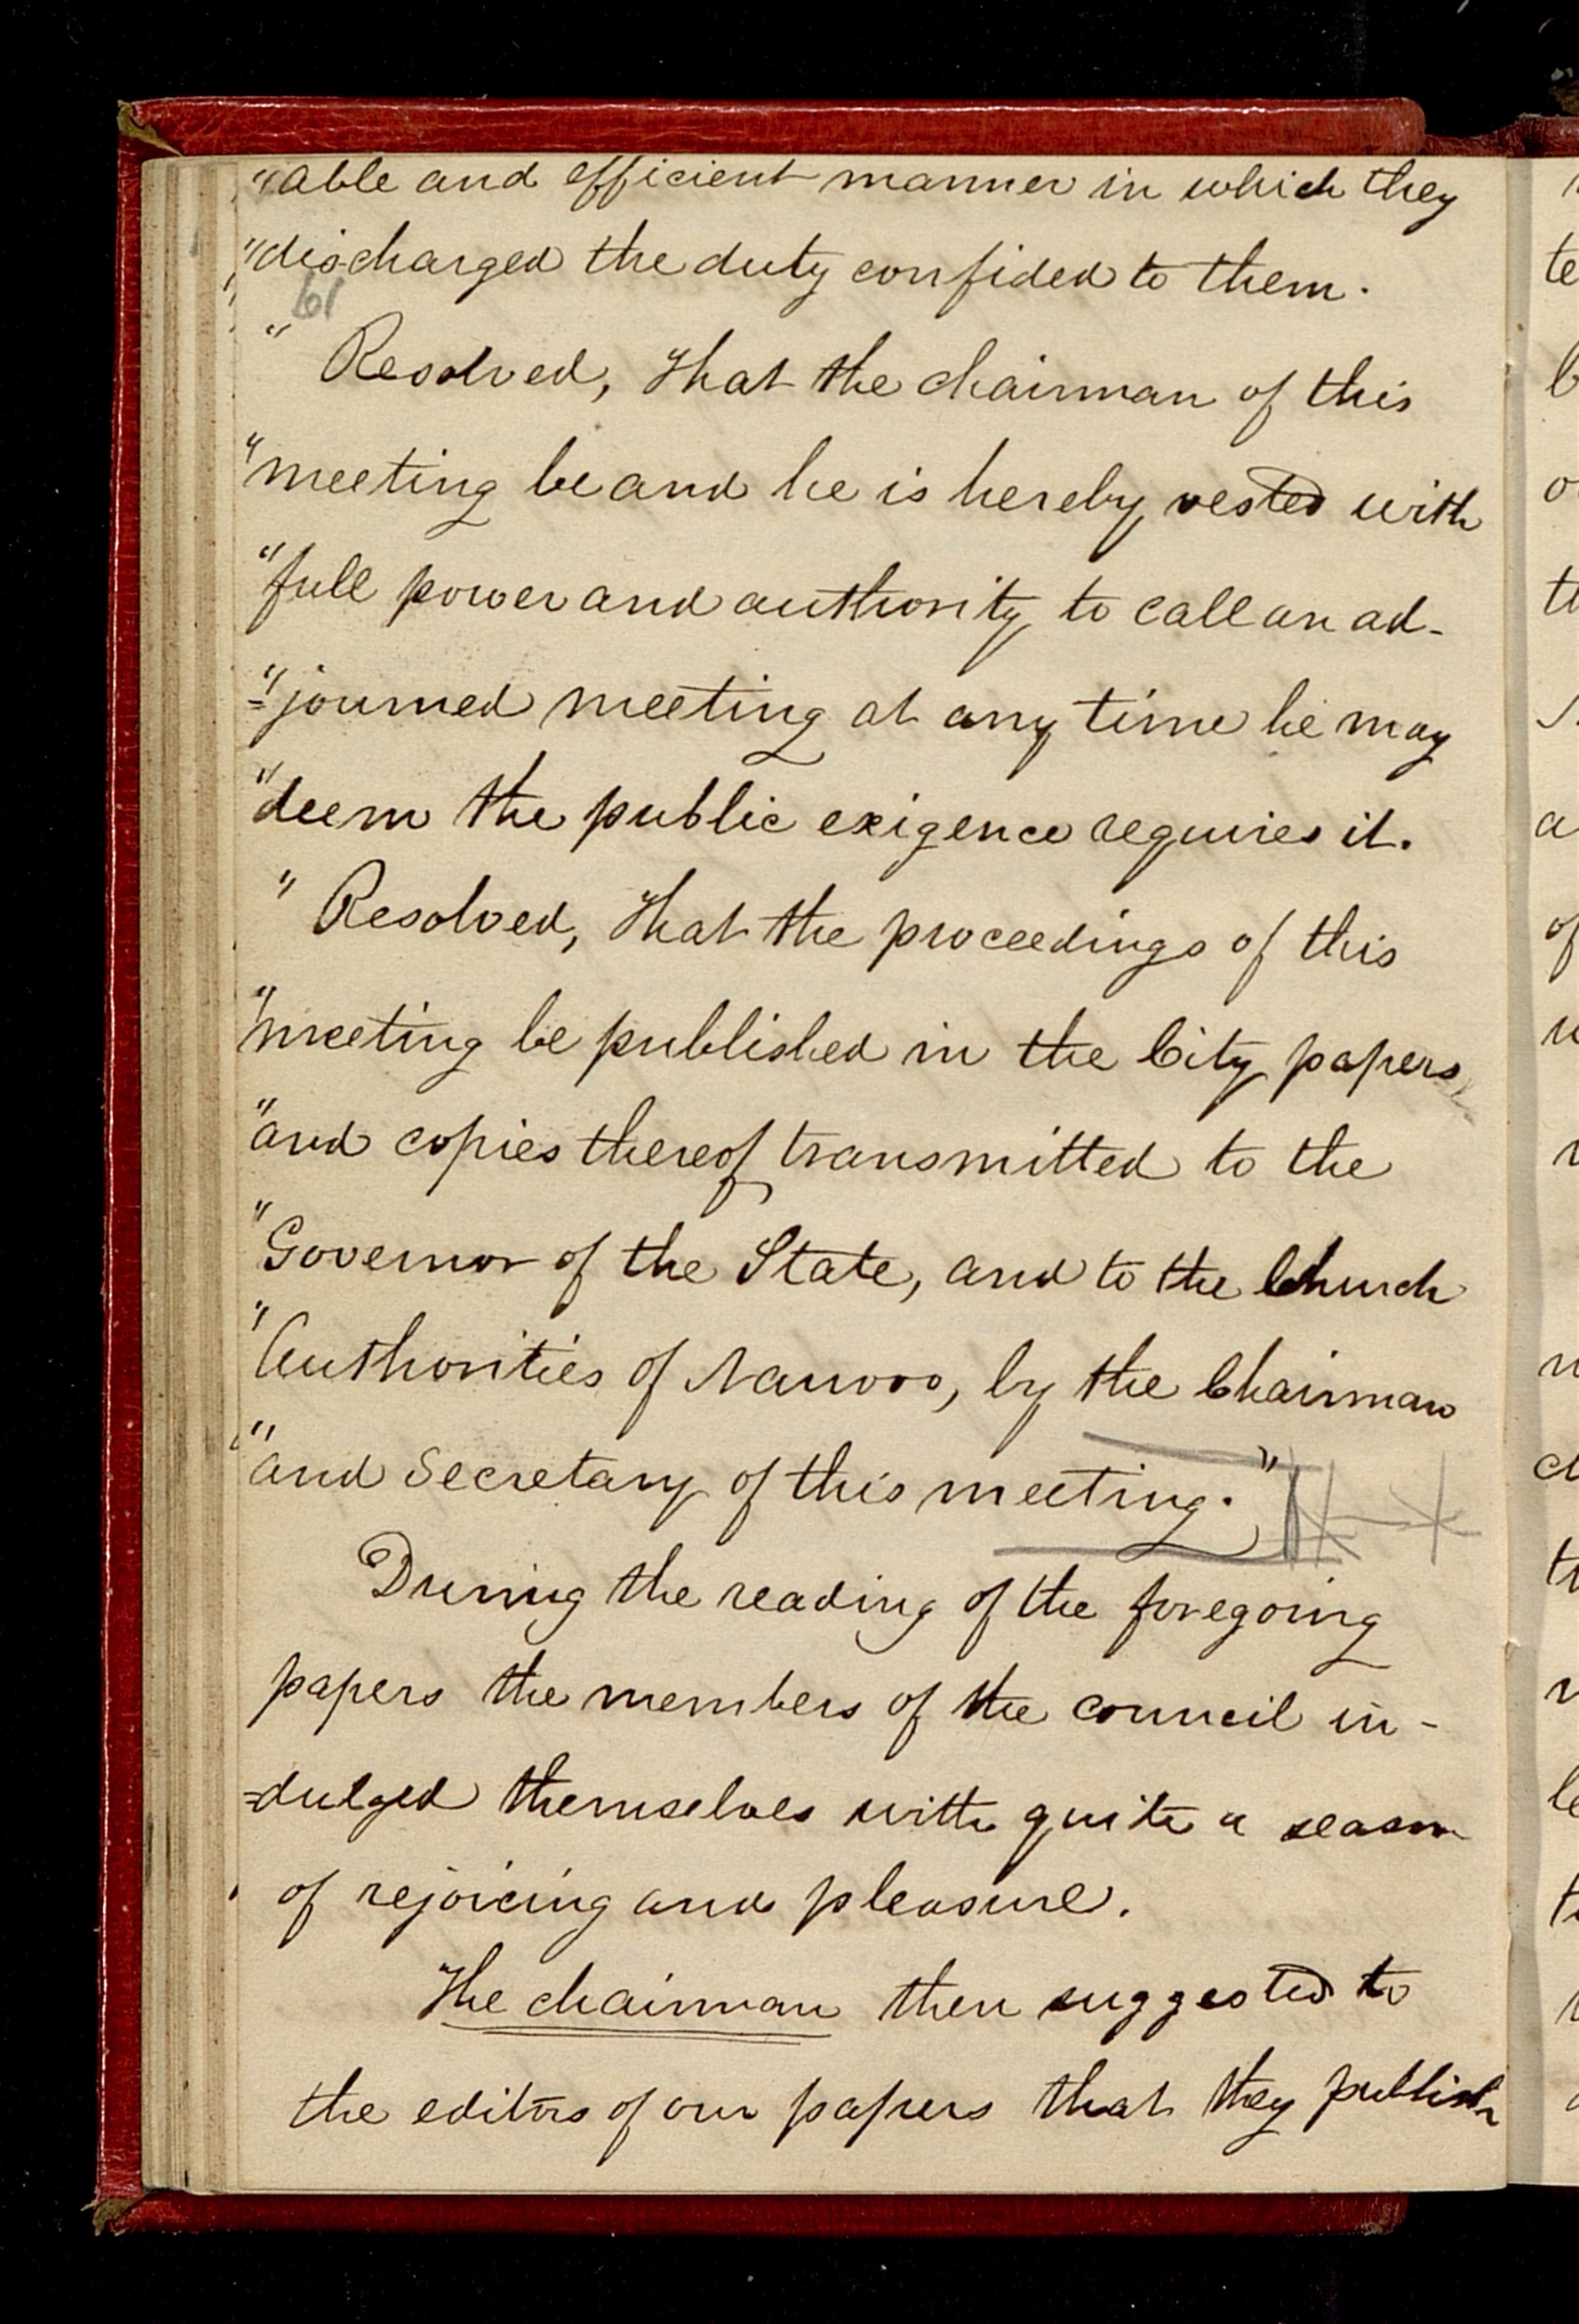 "able and efficient manner in which they
"discharged the duty confided to them.
61
" Resolved, That the chairman of this
"meeting be and he is hereby vested with
"full power and authority to call an ad-
"=journed meeting at any time he may
"deem the public exigence requires it.
" Resolved, That the proceedings of this
"meeting be published in the City papers
"and copies thereof transmitted to the
"Governor of the State, and to the Church
"Authorities of Nauvoo, by the Chairman
"and Secretary of this meeting."
During the reading of the foregoing
papers the members of the council in-
=dulged themselves with quite a season
of rejoicing and pleasure.
The chairman then suggested to
the editors of our papers that they publish